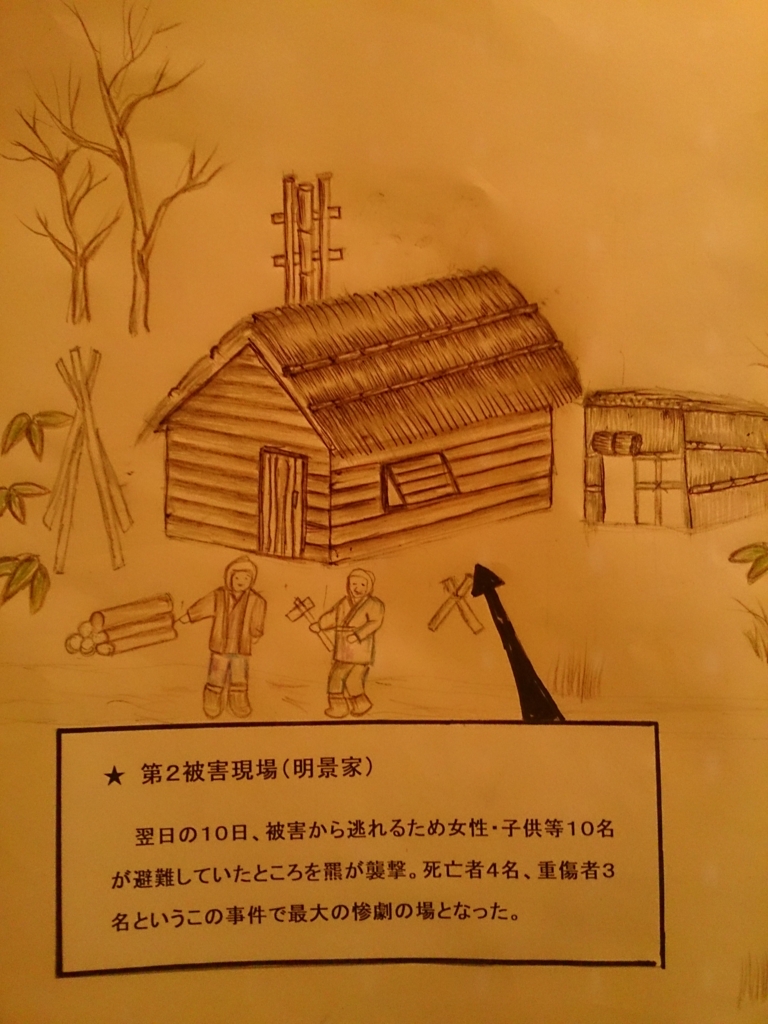 ★ 第2被害現場(明景家)
翌日の10日、被害から逃れるため女性・子供等10名
が避難していたところを羆が襲撃。死亡者4名、重傷者3
名というこの事件で最大の惨劇の場となった。